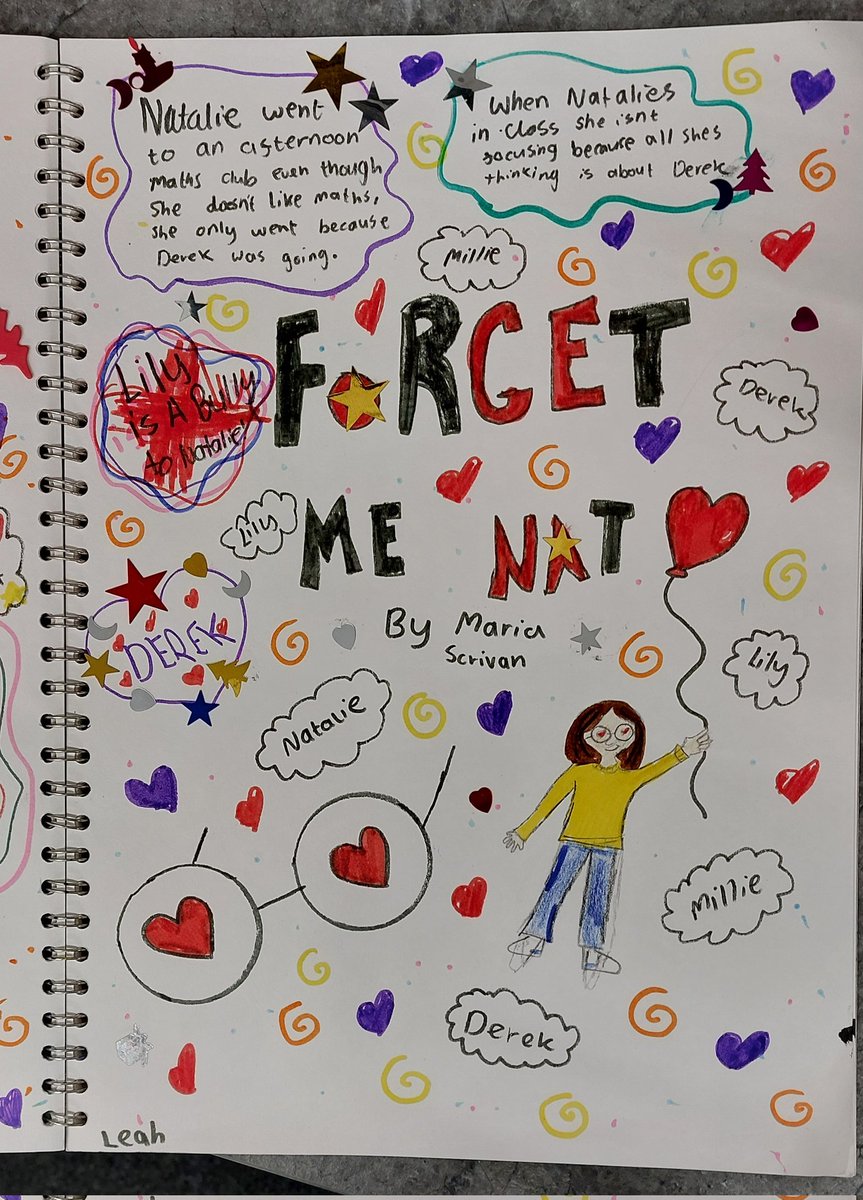 Natalie went
to an afternoon
maths club even though
She doesn't like maths,
she only went because
Derek was going.
When Natalies
in class she isnt
focusing because all shes
thinking is about Derek
Millie
FORGET
Lily
is A Bully
to Natalie
Derek
ME NAT
Lily
By Maria
Scrivan
DEREK
Lily
Natalie
Millie
Derek
Leah